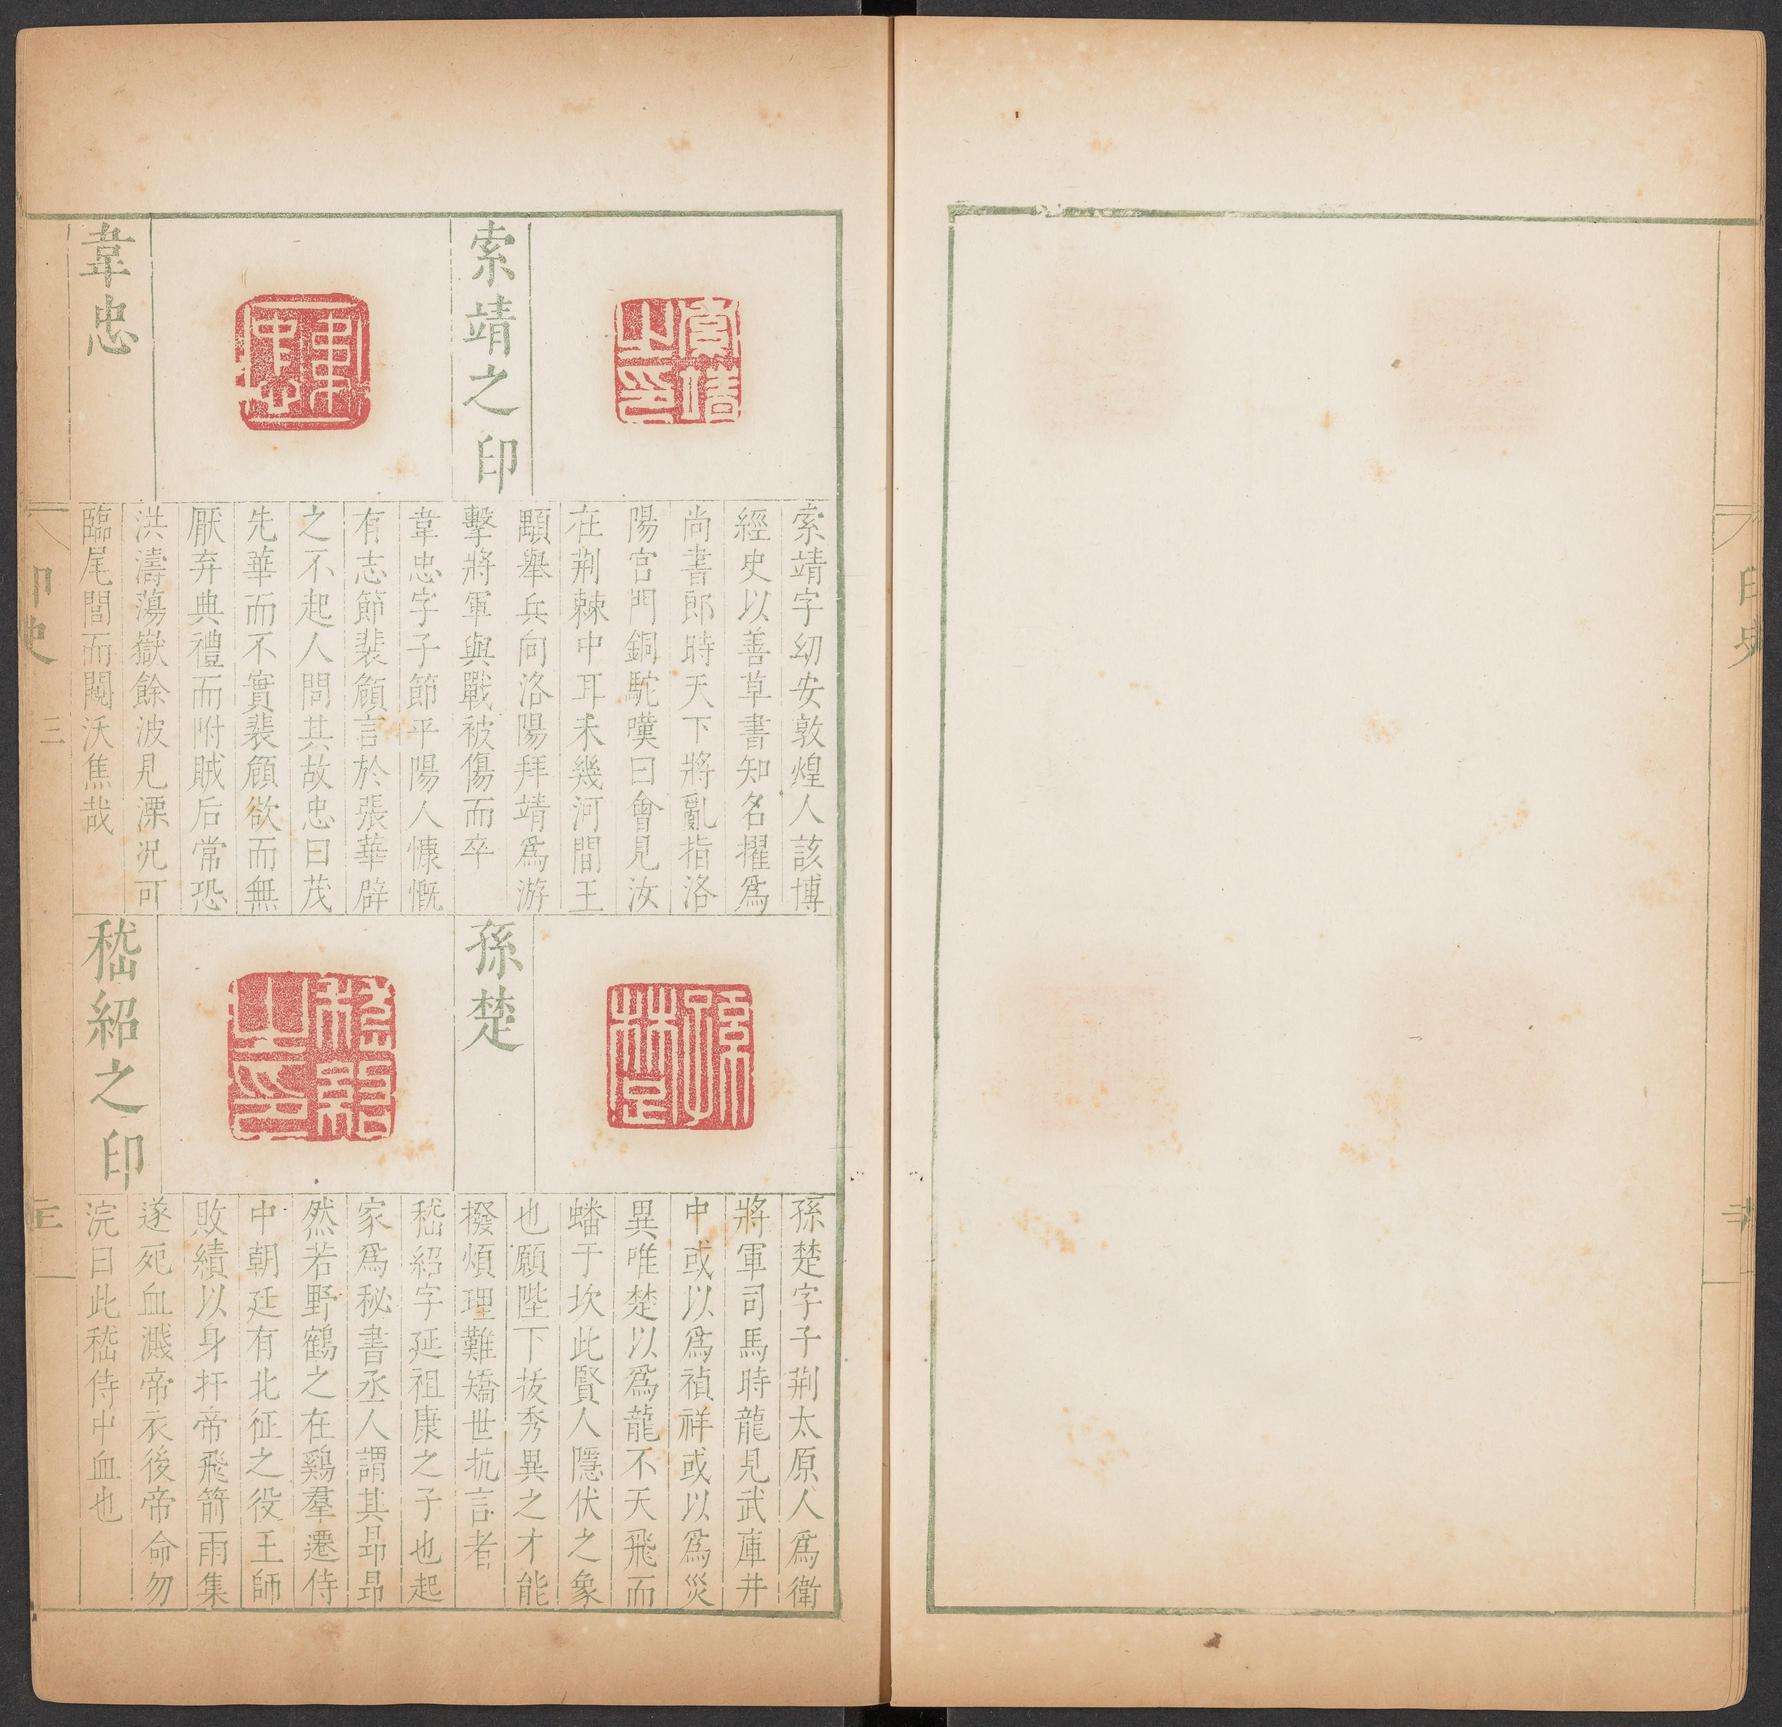 索靖之印
索靖字幼安敦煌人該博
經史以善草書知名擢爲
尚書郎時天下將亂指洛
陽宮門銅駝嘆曰會見汝
在荆棘中耳未幾河間王
顒舉兵向洛陽拜靖爲游
擊將軍與戰被傷而卒
韋忠
韋忠字子節平陽人慷慨
有志節裴頠言於張華辟
之不起人問其故忠曰茂
先華而不實裴頠欲而無
厭弃典禮而附賊后常恐
洪濤蕩嶽餘波見漂况可
臨尾閭而闚沃焦哉
孫楚
孫楚字子荆太原人爲衛
將軍司馬時龍見武庫井
中或以爲禎祥或以爲災
異唯楚以爲龍不天飛而
蟠于坎此賢人隱伏之象
也願陛下拔秀異之才能
撥煩理難矯世抗言者
嵇紹之印
嵇紹字延祖康之子也起
家爲秘書丞人謂其昻昻
然若野鶴之在雞羣遷侍
中朝廷有北征之役王師
敗績以身扞帝飛箭雨集
遂死血濺帝衣後帝命勿
浣曰此嵇侍中血也
印史
三
印史